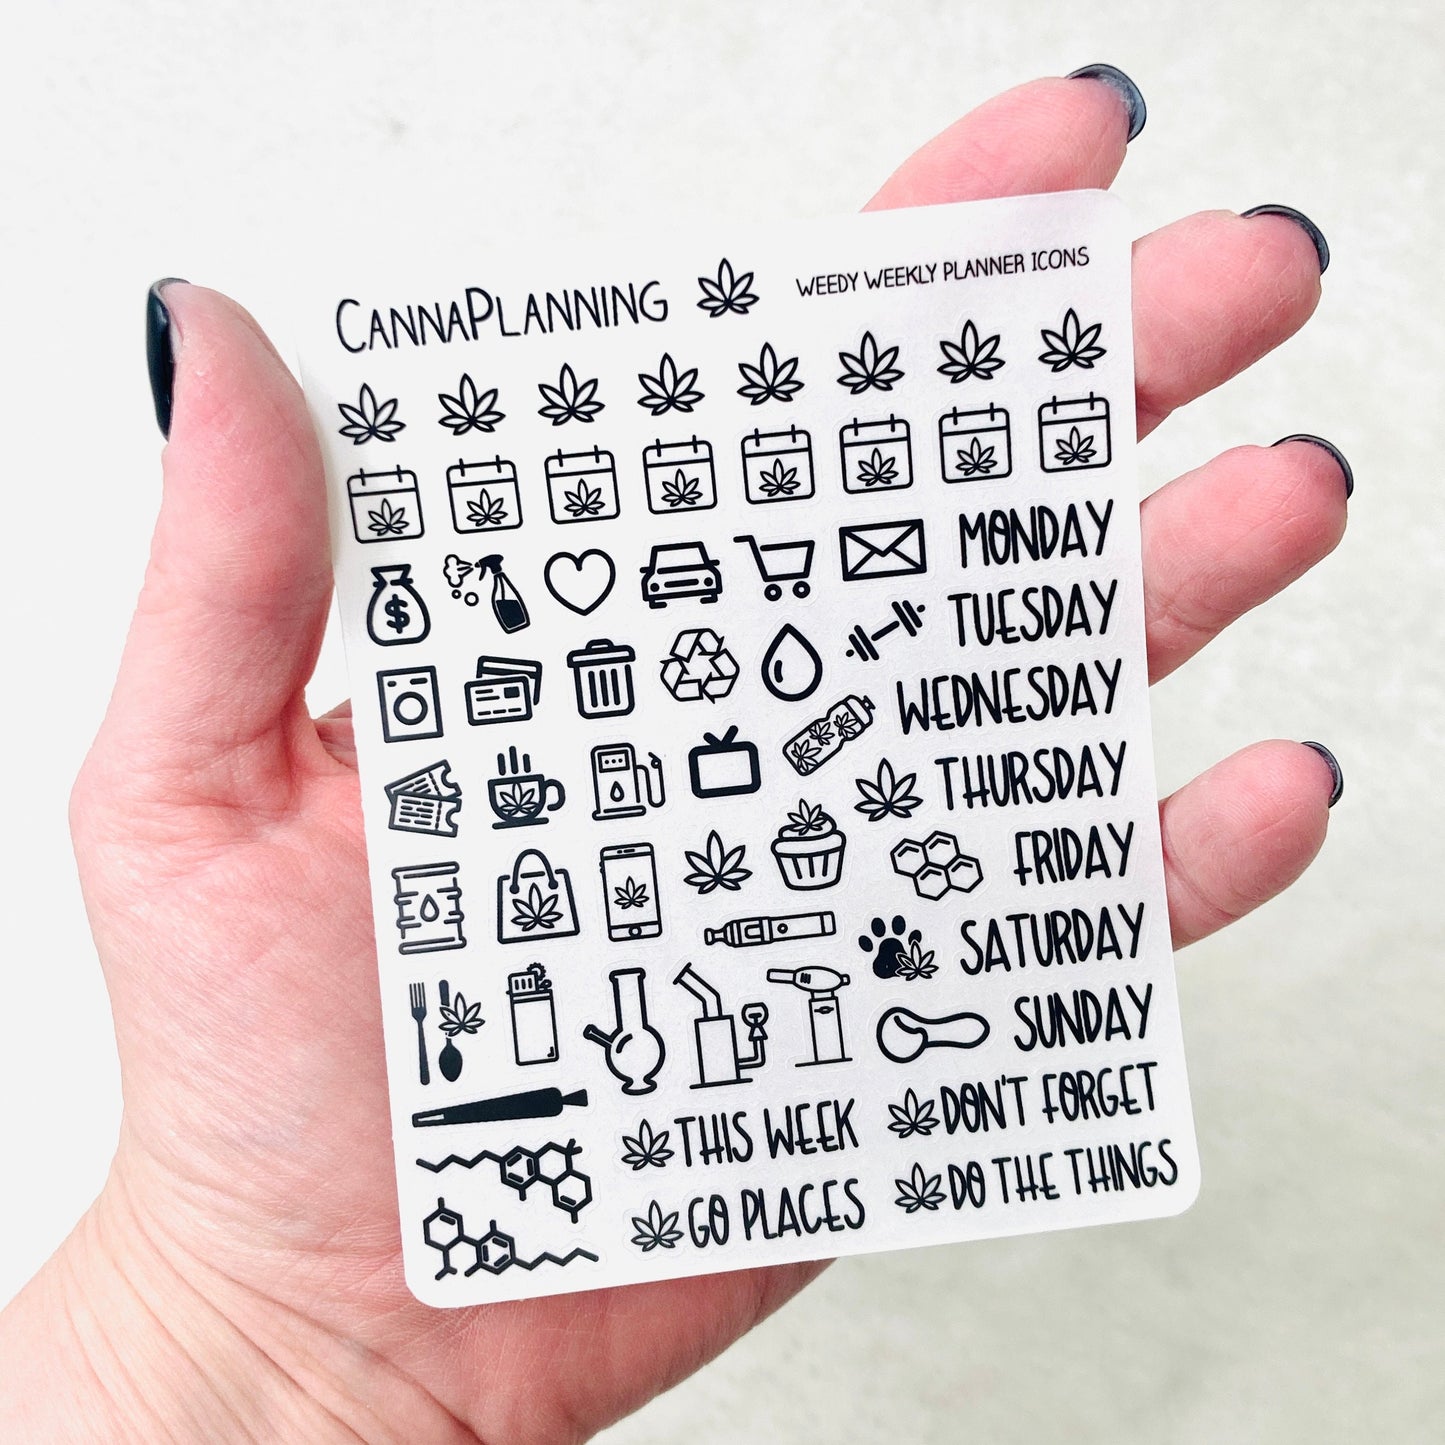 CANNAPLANNING
WEEDY WEEKLY PLANNER ICONS
MONDAY
TUESDAY
WEDNESDAY
THURSDAY
FRIDAY
SATURDAY
SUNDAY
$
THIS WEEK
DON'T FORGET
GO PLACES
DO THE THINGS